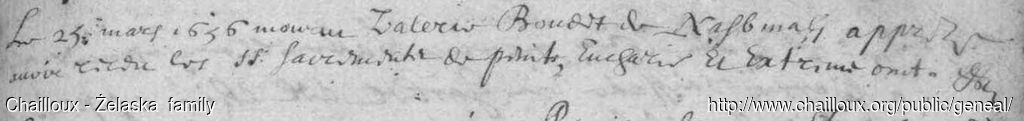 Le 25e mars 1656 mourut Valerie Boudet de apprez
avoir receu les Sts sacrements de penit. Eucharis et extreme onct.
Chailloux - Żelaska family
http://www.chailloux.org/public/geneal/